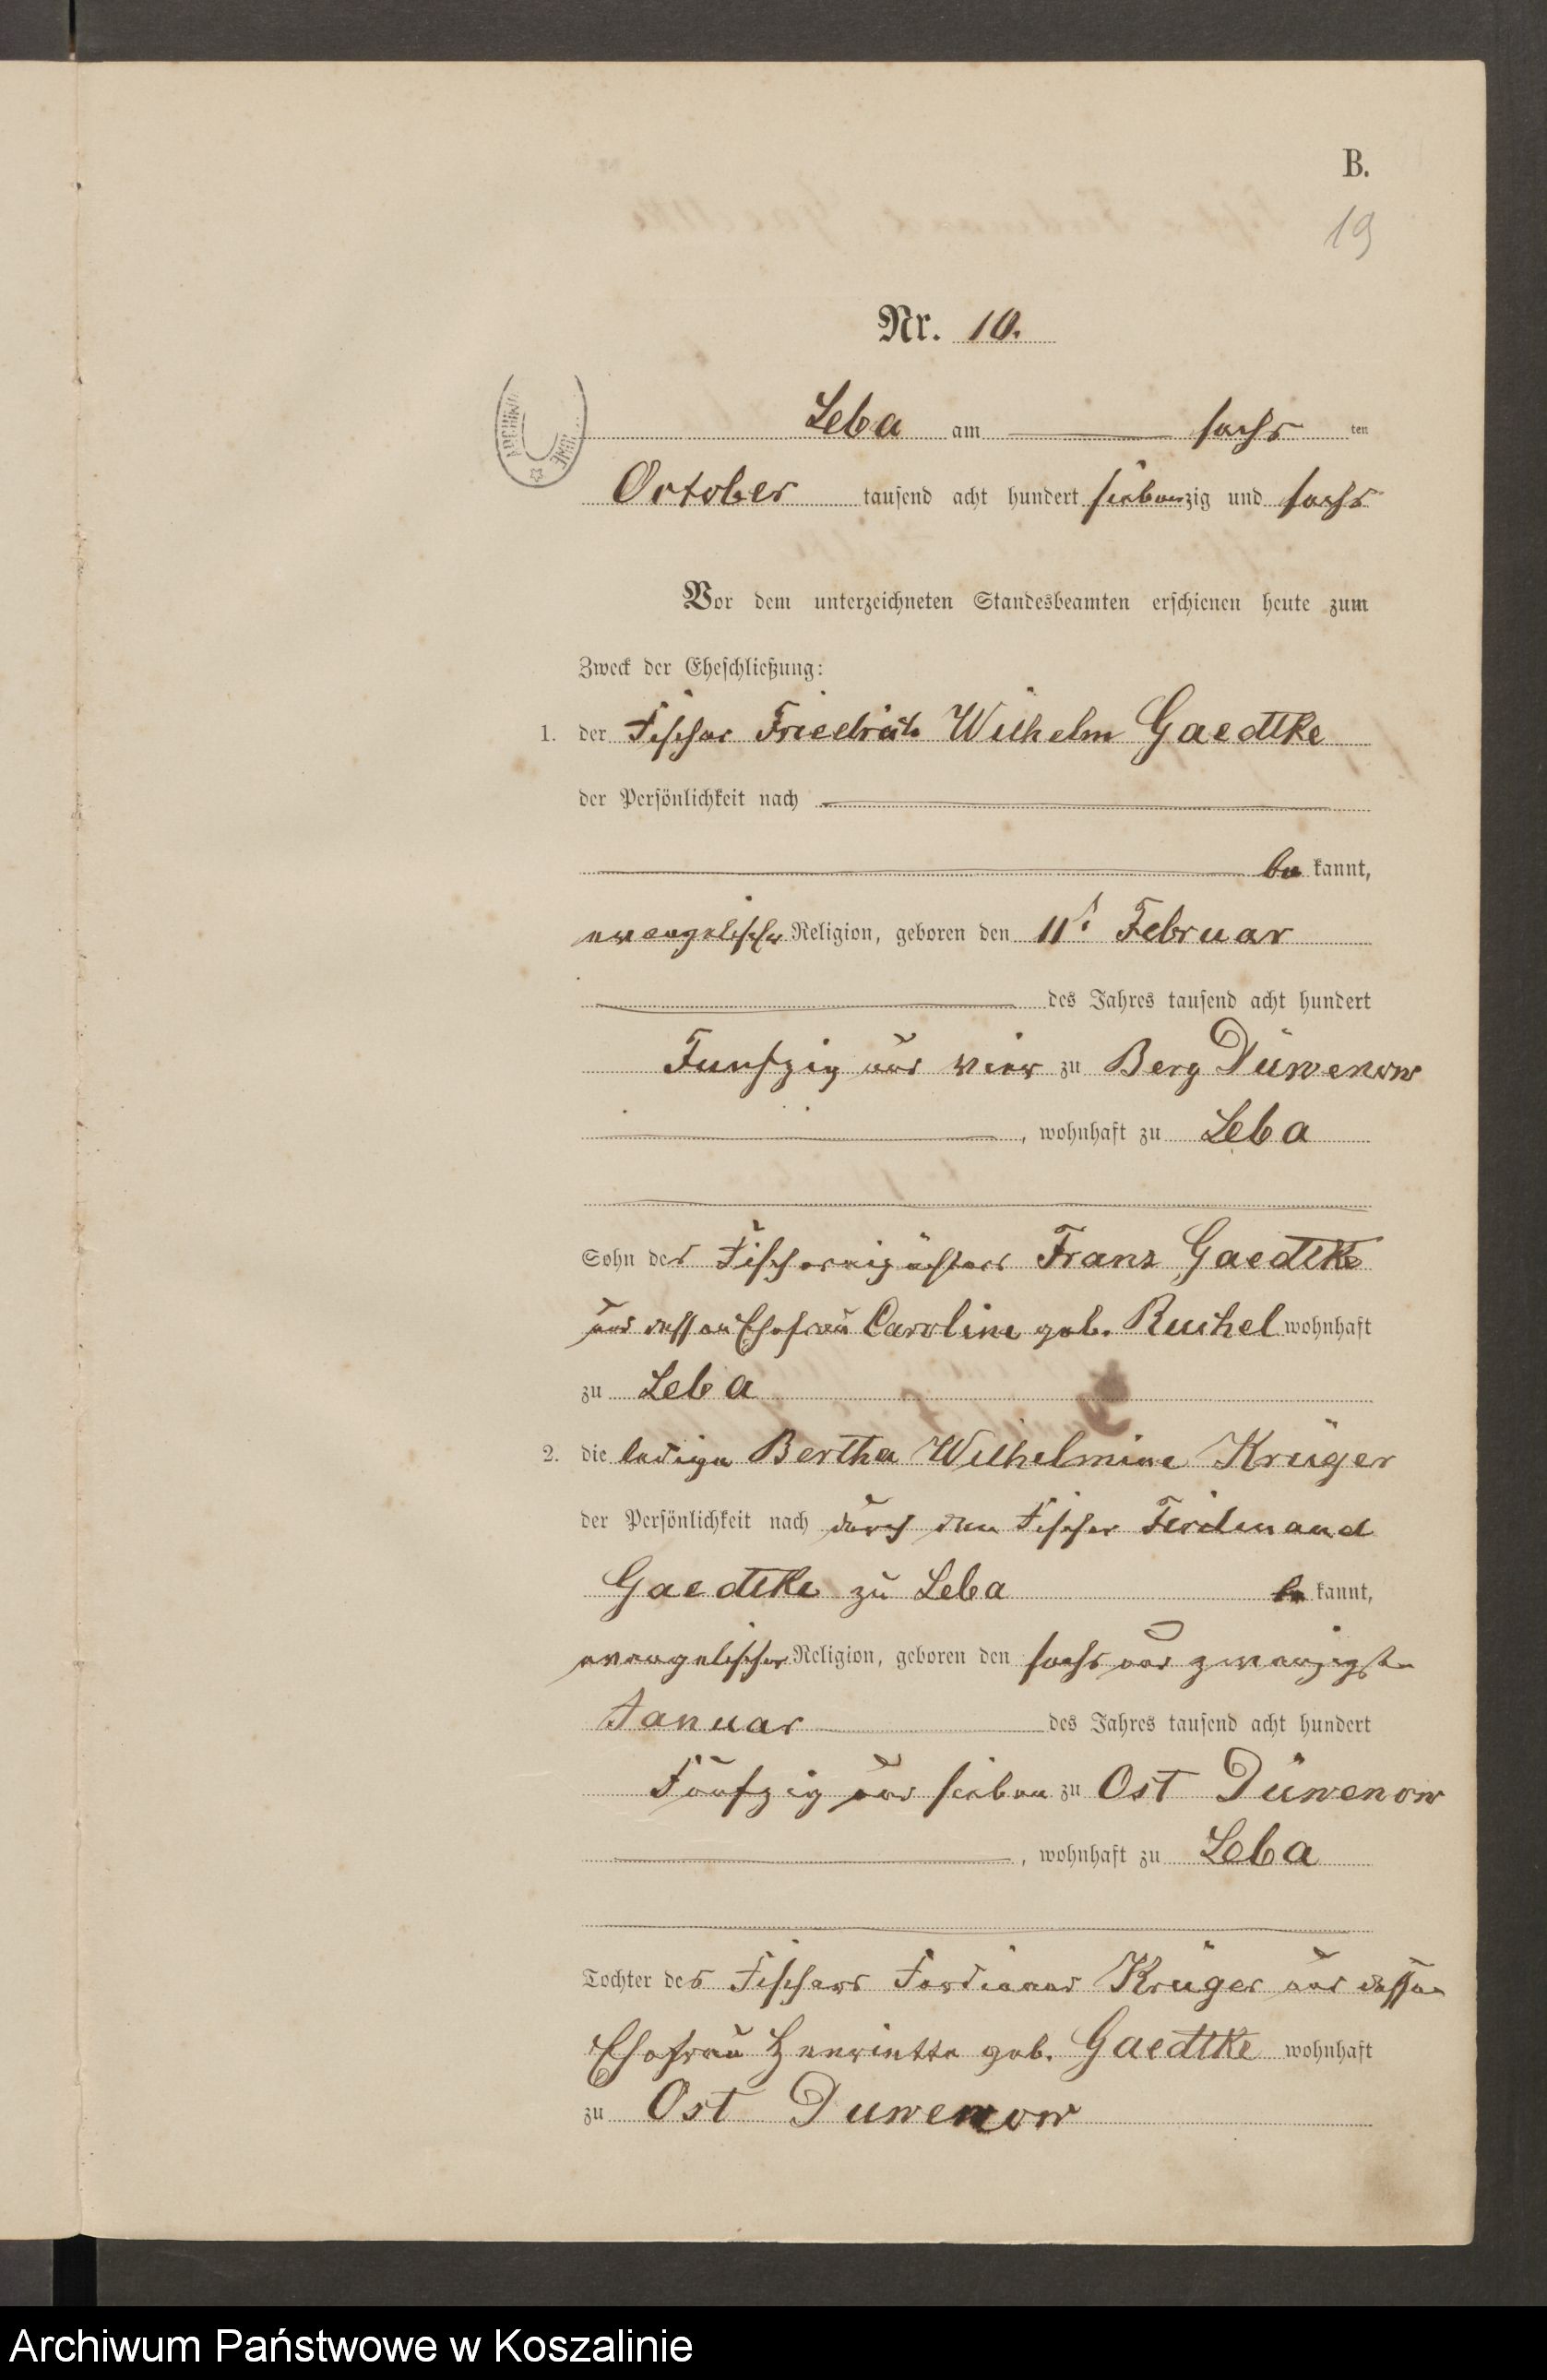 B.
19
Nr. 10.
Leba am sechs ten
October tausend acht hundert siebenzig und sechs
Vor dem unterzeichneten Standesbeamten erschienen heute zum
Zweck der Eheschließung:
1. der Fischer Friedrich Wilhelm Gaedtke
der Persönlichkeit nach
be kannt,
evangelischer Religion, geboren den 11t. Februar
des Jahres tausend acht hundert
Funfzig und vier zu Berg Düwenow
, wohnhaft zu Leba
Sohn des Franz Gaedtke
und dessen Ehefrau Caroline geb. wohnhaft
zu Leba
2. die ledige Bertha Wilhelmine Krüger
der Persönlichkeit nach durch den Fischer Ferdinand
Gaedtke zu Leba be kannt,
evangelischer Religion, geboren den sechs und zwanzigsten
Januar des Jahres tausend acht hundert
Fünfzig und sieben zu Ost Düwenow
, wohnhaft zu Leba
Tochter des Fischers Ferdinand Krüger und dessen
Ehefrau Henriette geb. Gaedtke wohnhaft
zu Ost Duwenow
Archiwum Państwowe w Koszalinie